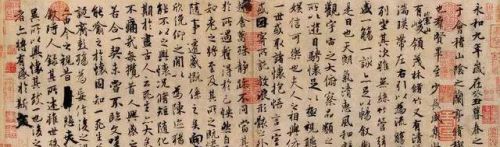 和九年歲在癸丑暮春之
會稽山陰之蘭亭脩
群賢畢至少長咸
有崇山峻領茂林脩竹又有
湍暎帶左右引以為
列坐其次雖無絲竹管弦
盛一觴一詠亦足以暢敘
是日也天朗氣清惠風和
觀宇宙之大俯察品類之
所以遊目騁懷足以極視聽
娛信可樂也夫人之相與
世或取諸懷抱悟言一室
因寄所託放浪形骸之
趣舍萬殊靜躁不同當
於所遇蹔得於己怏然自
知老之將至及其所之既
隨事遷感慨係之矣向
欣俛仰之間以為陳迹
能不以之興懷況脩短隨化
期於盡古人云死生亦大矣
不痛哉每攬昔人興感
若合一契未嘗不臨文嗟
能喻之於懷固知一死生
誕齊彭殤為妄作後之
今之視昔悲夫
敘時人錄其所述雖世殊
所以興懷其致一也後之
者亦將有感於斯文